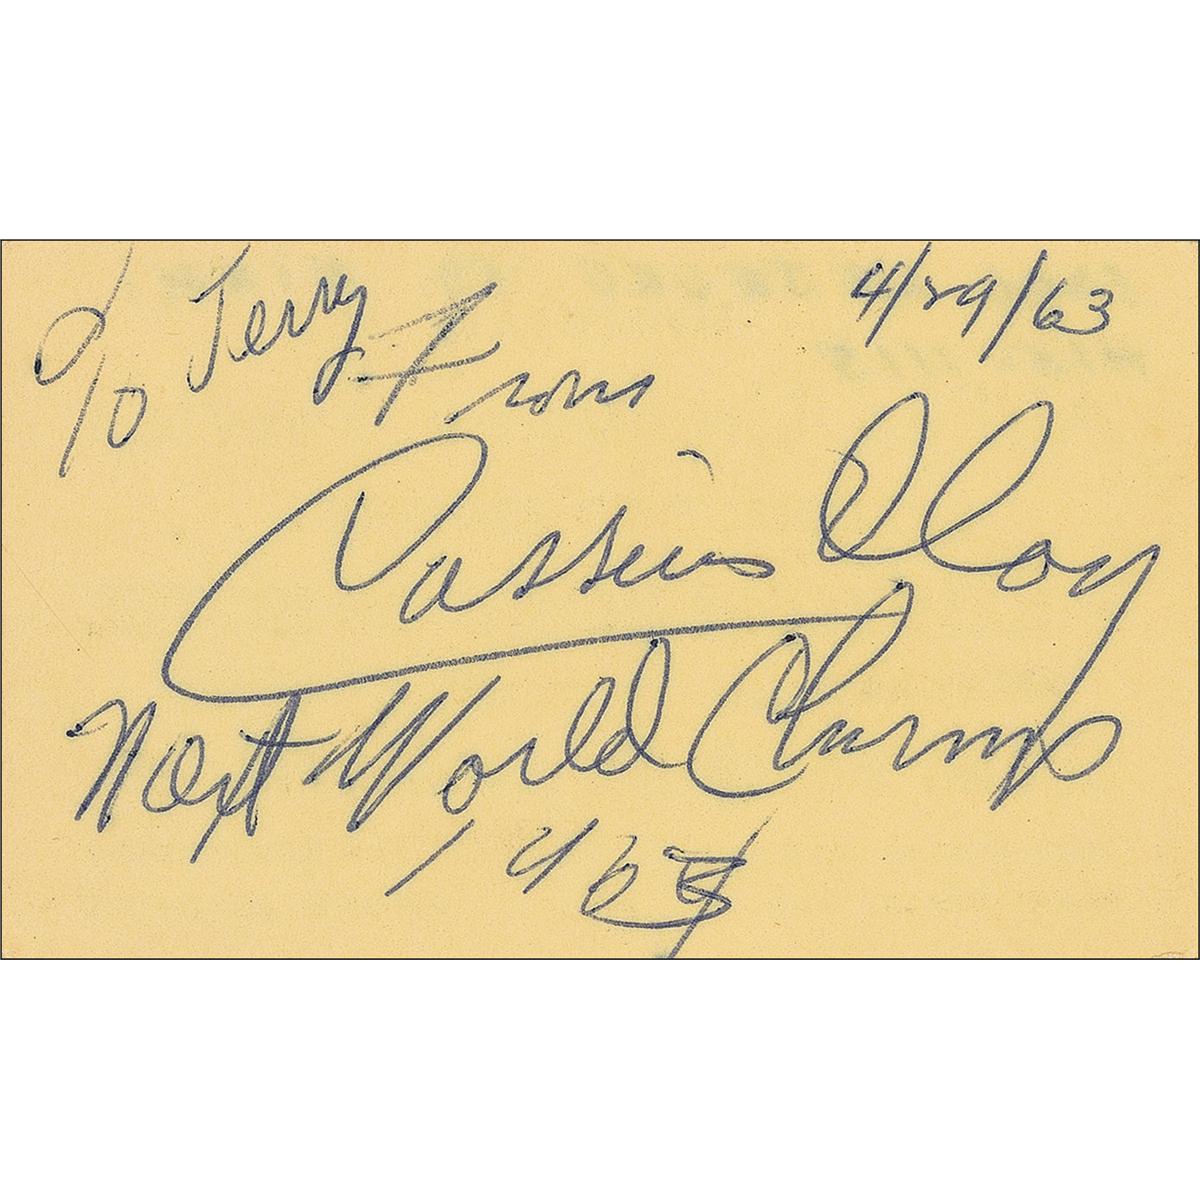 To Jerry From
4/29/63
Cassius Clay
Next World Champ